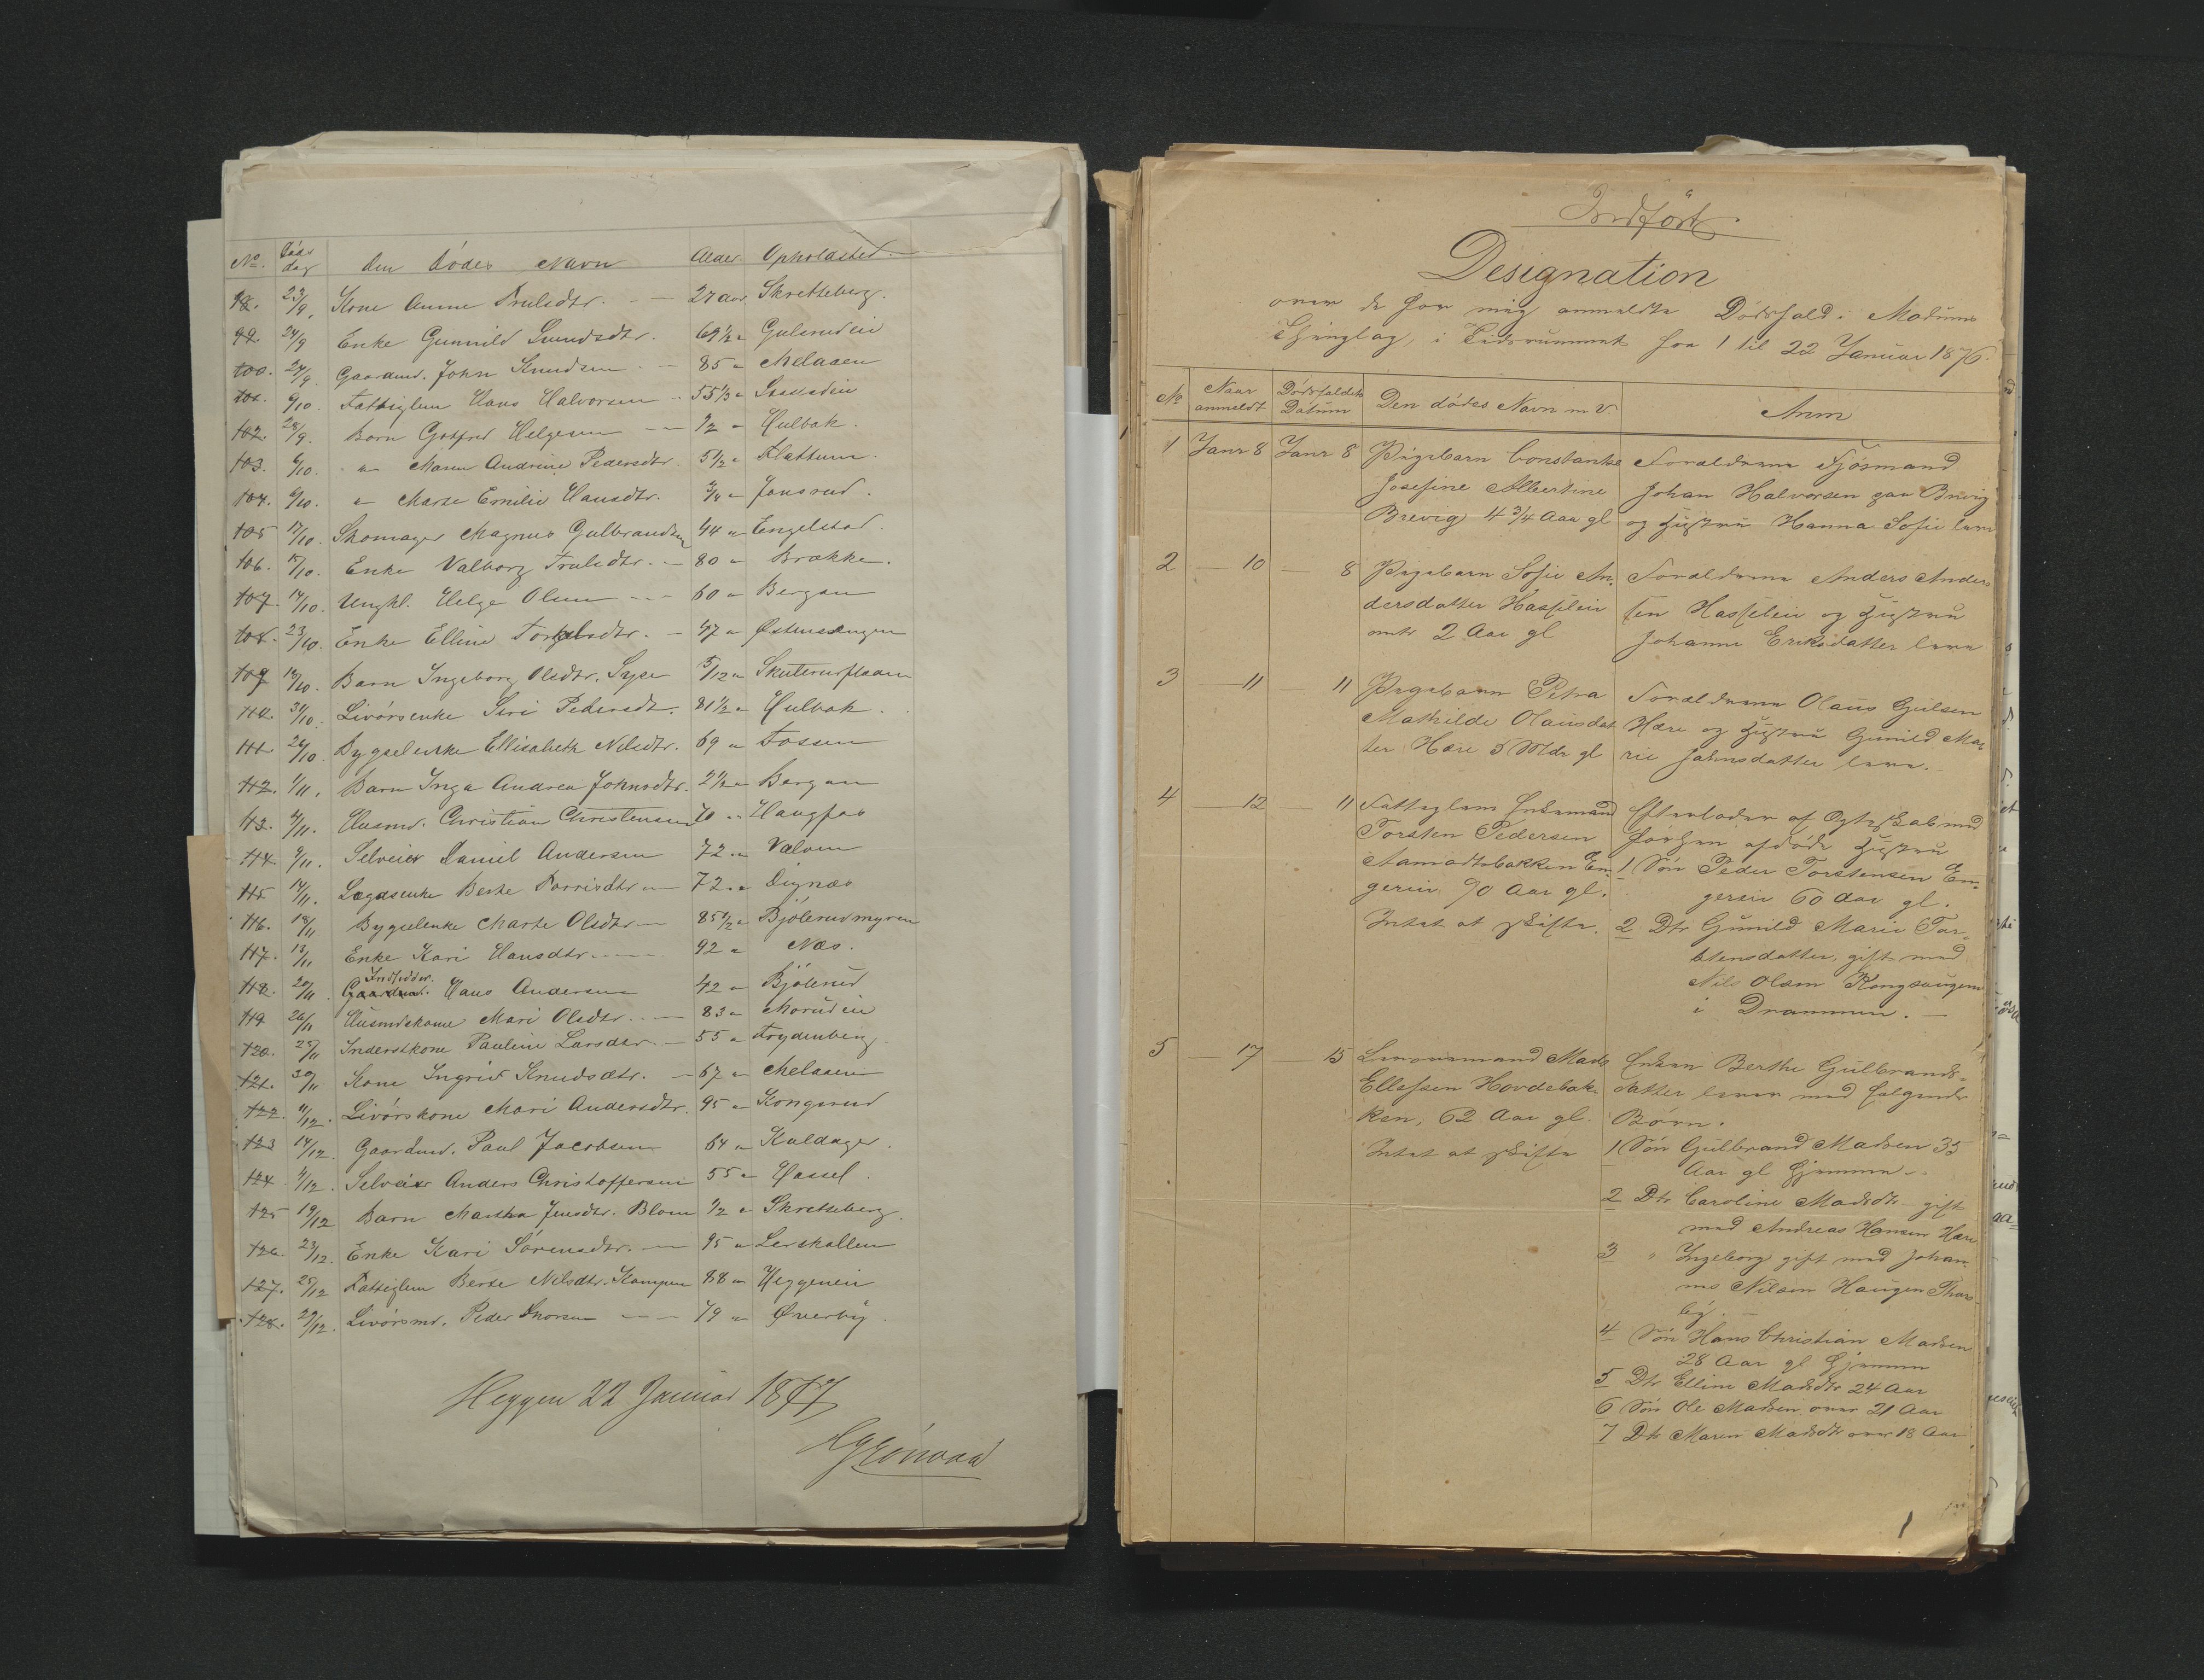 No. Døds dag Den Dødes Navn Alder Opholdsted.
98. 23/9. Kone Anne Trulsdtr. 27 aar Skretteberg.
99. 24/9 Enke Gunnild Svendsdtr. 69 1/2 " Gulsrudeie
100. 27/9. Gaardmd. John Knudsen 85 " Melaaen
101. 6/10. Fattiglem Hans Halvorsen 55 1/3 "
102. 28/9. Barn Gotfred Helgesen 1/2 " Hulbak.
103. 6/10. " Maren Andrine Pedersdtr. 5 1/2 " Flattum.
104. 6/10. " Marte Emilie Hansdtr. 3/4 " Jonsrud.
105 12/10. Skomager Magnus Gulbrandsen 44 " Engelstad.
106. 15/10. Enke Valborg Trulsdtr. 80 " Brække.
107. 14/10. Ungkl. Helge Olsen 60 " Bergan
108. 23/10. Enke Elline Torkelsdtr. 47 " Østensengen
109 19/10. Barn Ingeborg Olsdtr. Syse 5/12 "
110. 31/10. Livørsenke Siri Pedersdt. 81 1/2 " Hulbak.
111. 26/10. Bygselenke Ellisabeth Nilsdtr. 69 " Fossen
112. 1/11. Barn Inga Andrea Johnsdtr. 2 1/2 " Bergan
113. 4/11. Husmd. Christian Christensen 70 " Haugfos
114 9/11. Selveier Daniel Andersen 72 " Vælven
115 14/11. Lægdsenke Berte Torrisdtr 72 " Dignæs
116. 18/11 Bygselenke Marte Olsdtr 85 1/2 " Bjölerudmyren
117. 13/11 Enke Kari Hansdtr 92 " Næs.
Indsidder.
118. 20/11. Gaardmd. Hans Andersen 42 " Bjölerud
119 26/11 Husmdskone Mari Olsdtr. 83 " Morudeie
120. 25/11 Inderstkone Pauline Larsdtr. 55 " Frydenberg
121. 30/11 Kone Ingrid Knudsdtr. 67 " Melaaen
122. 11/12. Livörskone Mari Andersdtr. 95 " Kongsrud
123 14/12. Gaardmd. Paul Jacobsen 64 " Kaldager.
124 11/12. Selveier Anders Christoffersen 55 " Hassel.
125 19/12 Barn Martha Jensdtr. Blom 1/2 " Skretteberg.
126. 23/12. Enke Kari Sörensdtr. 95 " Lerskallen
127. 25/12 Fattiglem Berte Nilsdtr. Kampen 88 " Heggeneie
128. 29/12. Livörsmd. Peder Snorsen 79 " Øverby
Heggen 22 Januar 1877
HGrönvold
Indført.
Designation
over de for mig anmeldte Dödsfald i Modums
Thinglag, i Tidsrummet fra 1 til 22 Januar 1876.
No Naar anmeldt Dödsfaldets Datum Den dödes Navn m. v. Anm
1 Janr 8 Janr 8 Pigebarn Constanse Forældrene Fjösmand
Josefine Albertine Johan Halvorsen paa Brevig
Brevig 4 3/4 Aar gl og Hustru Hanna Sofie lever
2 — 10 — 8 Pigebarn Sofie An- Forældrene Anders Anders
dersdatter Hasseleie sen Hasseleie og Hustru
omtr 2 Aar gl Johanne Eriksdatter lever
3 — 11 — 11 Pigebarn Petra Forældrene Olaus Gulsen
Mathilde Olausdat Hære og Hustru Gunild Ma
ter Hære 5 Mdr gl rie Jahnsdatter lever.
4 — 12 — 11 Fattiglem Enkemand Efterlader af Ægteskab med
Torsten Pedersen forhen afdöde Hustru
Aamodtsbakken En- 1 Sön Peder Torstensen En-
gereie 90 Aar gl. gereie 60 Aar gl.
Intet at skifte. 2 Dtr Gunild Marie Tor-
stensdatter, gift med
Nils Olsen Kongsaugene
i Drammen. —
5 — 17 — 15 Leverumand Mads Enken Berthe Gulbrands-
Ellefsen Hovdebak- datter lever med følgende
ken, 62 Aar gl. Börn.
Intet at skifte 1 Sön Gulbrand Madsen 35
Aar gl hjemme
2 Dtr Caroline Madsdtr gift
med Andreas Hansen Hære
3 " Ingeborg gift med Johan-
nes Nilsen Haugen Thors-
by. —
4 Sön Hans Christian Madsen
28 Aar gl hjemme
5 Dtr Elline Madsdtr 24 Aar
6 Sön Ole Madsen over 21 Aar
7 Dtr Maren Madsdtr over 18 Aar
1